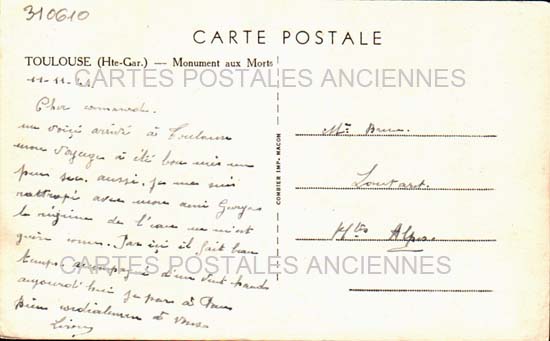 310610
CARTE POSTALE
TOULOUSE (Hte-Gar.) — Monument aux Morts
11-11-
CARTES POSTALES ANCIENNES
Cher camarade.
me voiçi arrivé à Toulouse
mon voyage à été bon mis un
peu sec. aussi, je me suis
rattrapé avec mon ami Georges
le régime de l'eau ne m'est
guère connu. Par içi il fait bon
temps accompagné d'un vent chaud
aujourd'hui je pars à
bien cordialement à vous
COMBIER IMP. MACON
Mr
Htes Alpes
CARTES POSTALES ANCIENNES